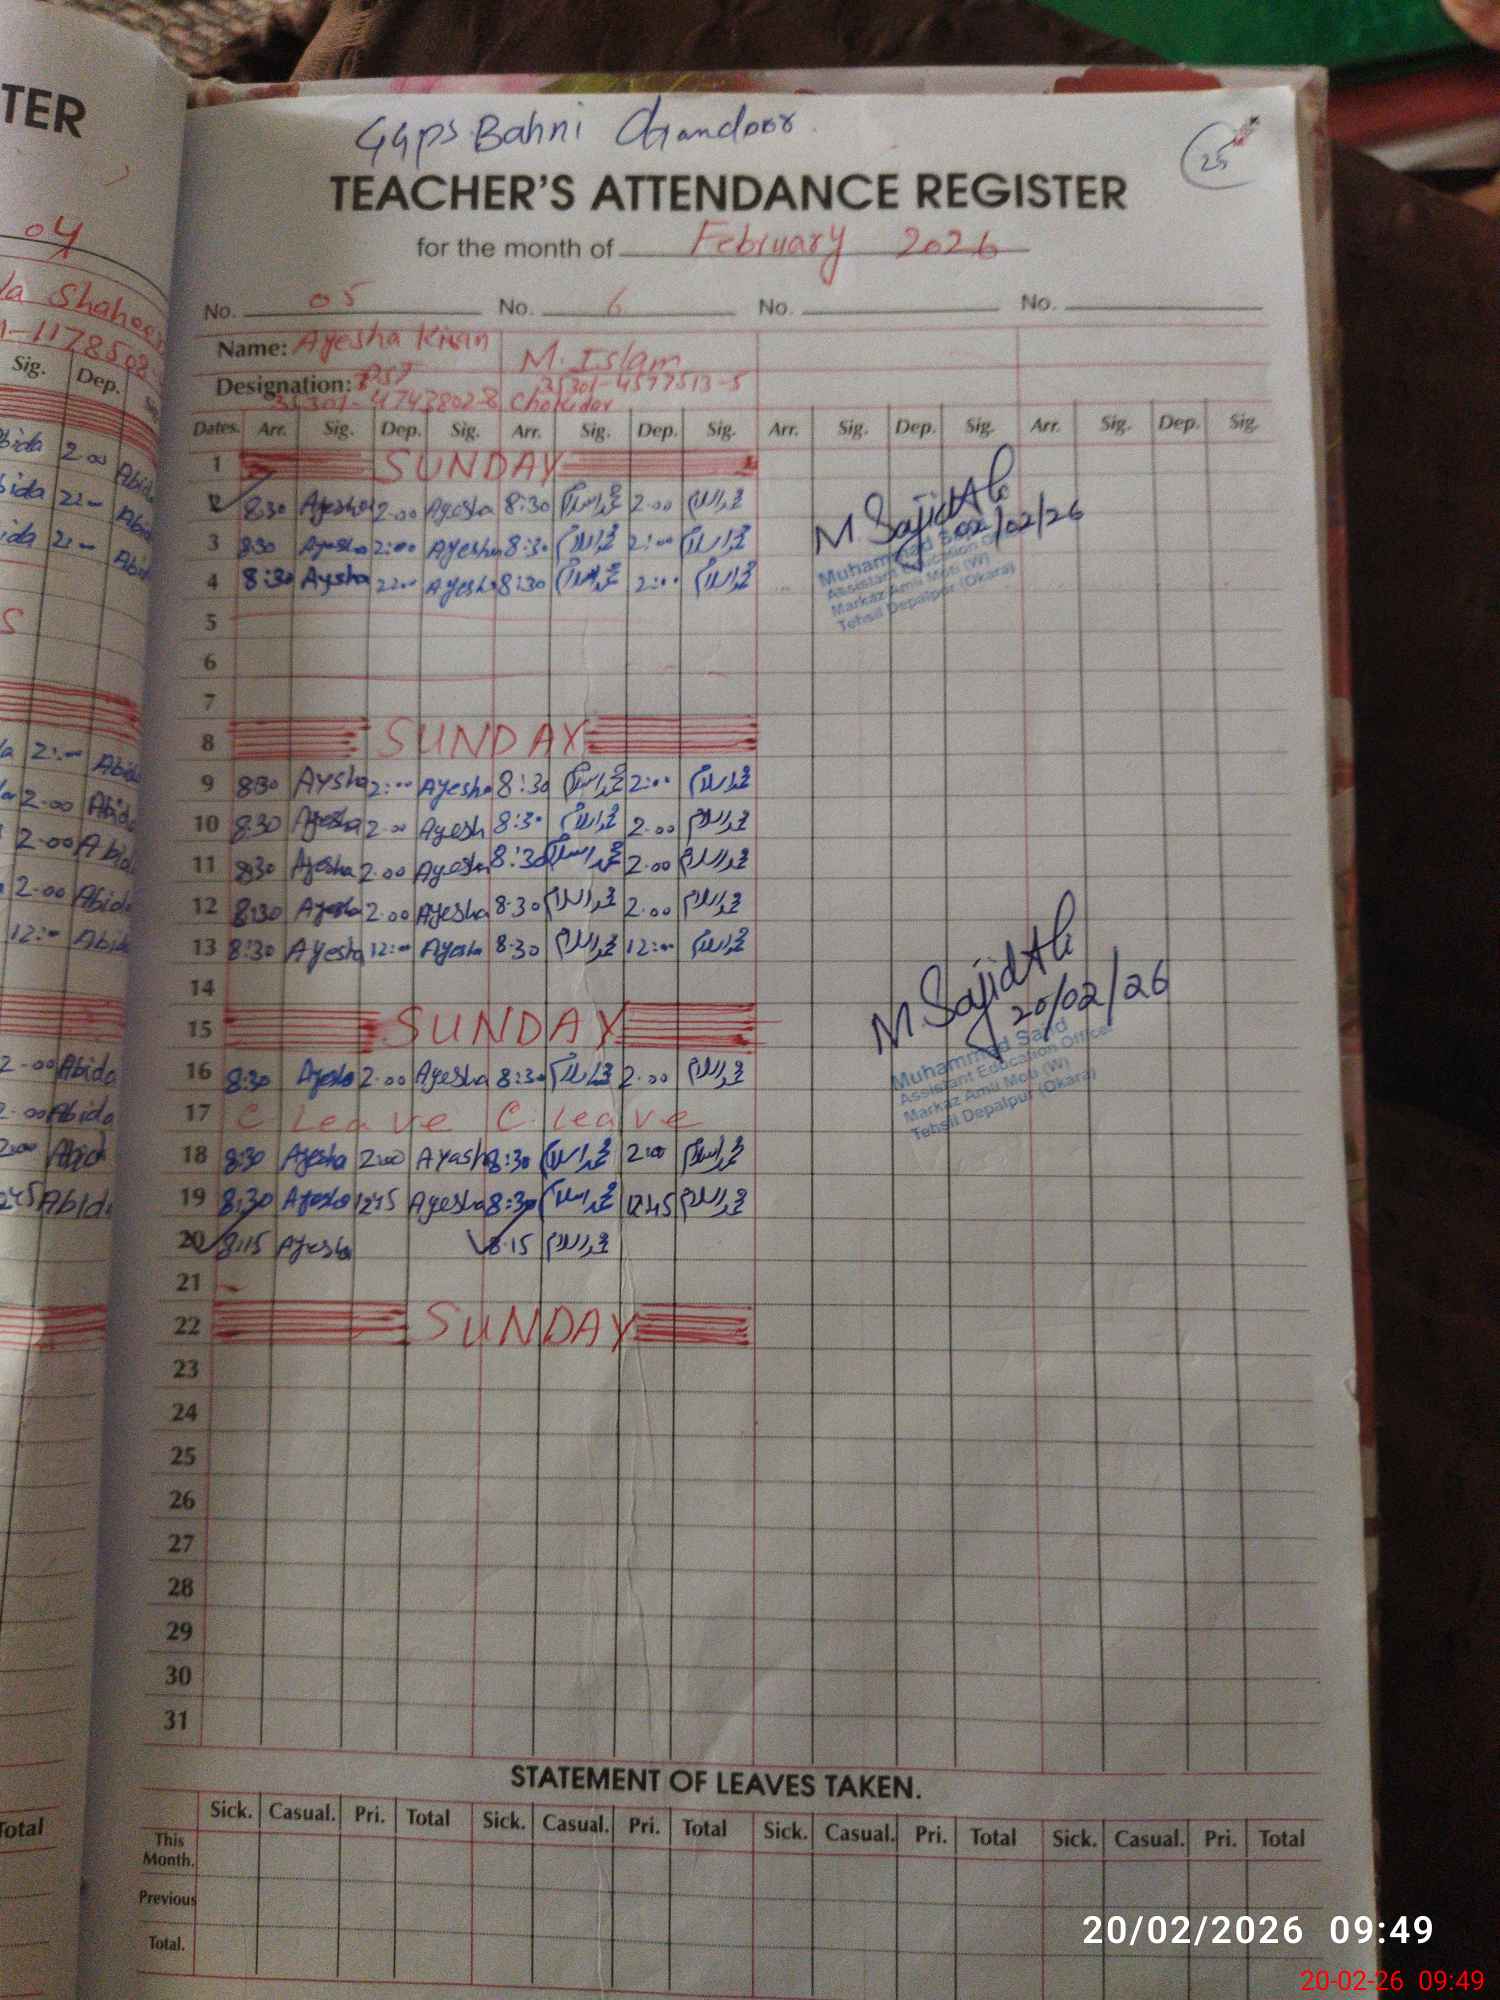 TER
04
Shaheen
Sig. Dep.
GGPS Bahni Chandoor
25
TEACHER'S ATTENDANCE REGISTER
for the month of February 2026
No. 05 No. 6 No. No.
Name: Ayesha Kiran M. Islam
Designation: PST 35301-4577513-5
35301-4743802-8 Chokidar
Dates. Arr. Sig. Dep. Sig. Arr. Sig. Dep. Sig. Arr. Sig. Dep. Sig. Arr. Sig. Dep. Sig.
1 SUNDAY
2 8:30 Ayesha 2:00 Ayesha 8:30 محمد اسلام 2:00 محمد اسلام
3 8:30 Ayesha 2:00 Ayesha 8:30 محمد اسلام 2:00 محمد اسلام
4 8:30 Aysha 2:00 Ayesha 8:30 محمد اسلام 2:00 محمد اسلام
M Sajid Ali
02/02/26
Muhammad Sajid
Assistant Education Officer
Markaz Amli Moti (W)
Tehsil Depalpur (Okara)
5
6
7
8 SUNDAY
9 8:30 Aysha 2:00 Ayesha 8:30 محمد اسلام 2:00 محمد اسلام
10 8:30 Ayesha 2:00 Ayesh 8:30 محمد اسلام 2.00 محمد اسلام
11 8:30 Ayesha 2.00 Ayesha 8:30 محمد اسلام 2.00 محمد اسلام
12 8:30 Ayesha 2.00 Ayesha 8:30 محمد اسلام 2.00 محمد اسلام
13 8:30 Ayesha 12:00 Ayesha 8:30 محمد اسلام 12:00 محمد اسلام
14
15 SUNDAY
M Sajid Ali
20/02/26
Muhammad Sajid
Assistant Education Officer
Markaz Amli Moti (W)
Tehsil Depalpur (Okara)
16 8:30 Ayesha 2.00 Ayesha 8:30 محمد اسلام 2.00 محمد اسلام
17 C Leave C. leave
18 8:30 Ayesha 2:00 Ayasha 8:30 محمد اسلام 2:00 محمد اسلام
19 8:30 Ayesha 1245 Ayesha 8:30 محمد اسلام 12:45 محمد اسلام
20 8:15 Ayesha 8:15 محمد اسلام
21
22 SUNDAY
23
24
25
26
27
28
29
30
31
STATEMENT OF LEAVES TAKEN.
Sick. Casual. Pri. Total Sick. Casual. Pri. Total Sick. Casual. Pri. Total Sick. Casual. Pri. Total
This Month.
Previous
Total.
Total
20/02/2026 09:49
20-02-26 09:49